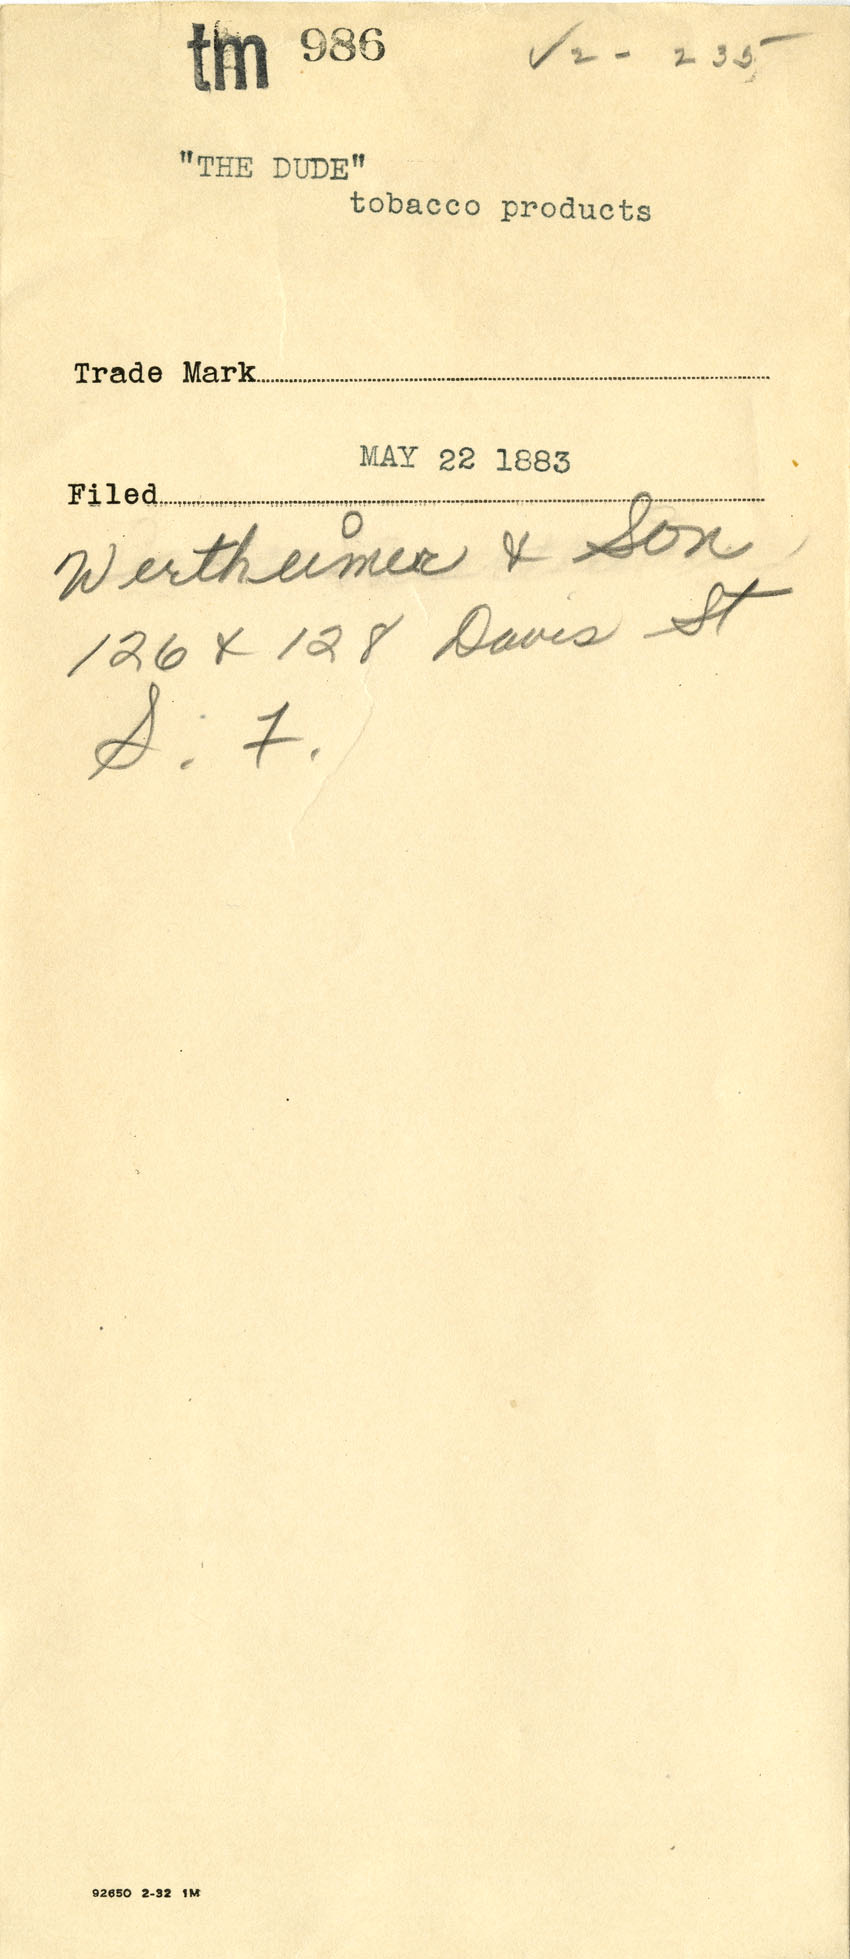 tm 986 √2 - 235
"THE DUDE"
tobacco products
Trade Mark
MAY 22 1883
Filed
Wertheimer & Son
126 & 128 Davis St
S. F.
92650 2-32 1M